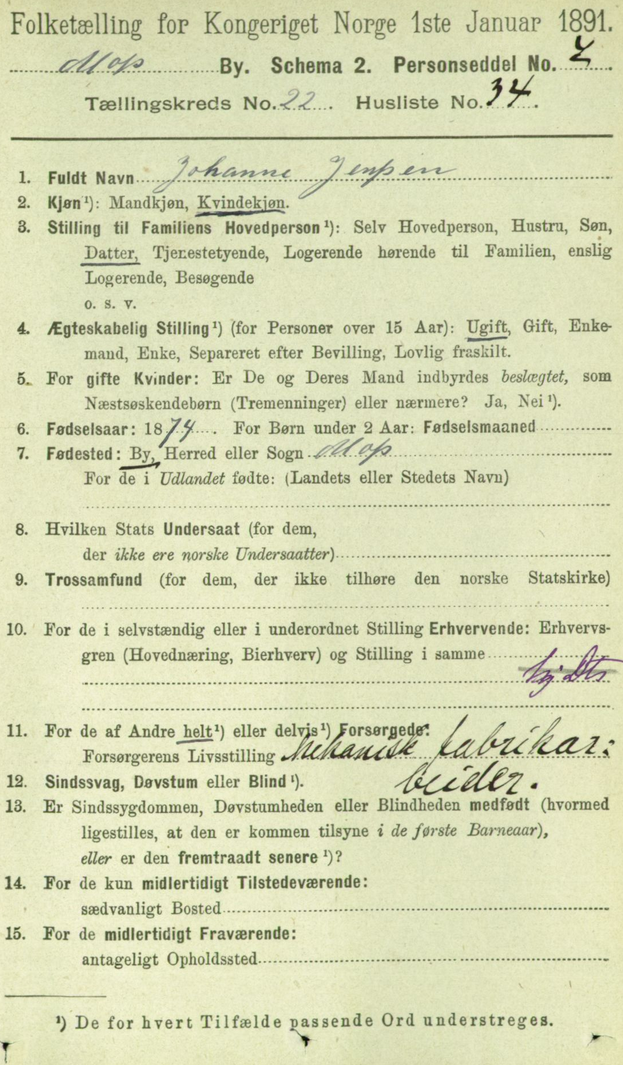 Folketælling for Kongeriget Norge 1ste Januar 1891.
Moss By. Schema 2. Personseddel No. 7.
Tællingskreds No. 22. Husliste No. 34.
1. Fuldt Navn Johanne Jenssen
2. Kjøn¹): Mandkjøn, Kvindekjøn.
3. Stilling til Familiens Hovedperson¹): Selv Hovedperson, Hustru, Søn,
Datter, Tjenestetyende, Logerende hørende til Familien, enslig
Logerende, Besøgende
o. s. v.
4. Ægteskabelig Stilling¹) (for Personer over 15 Aar): Ugift, Gift, Enke-
mand, Enke, Separeret efter Bevilling, Lovlig fraskilt.
5. For gifte Kvinder: Er De og Deres Mand indbyrdes beslægtet, som
Næstsøskendebørn (Tremenninger) eller nærmere? Ja, Nei¹).
6. Fødselsaar: 1874. For Børn under 2 Aar: Fødselsmaaned
7. Fødested: By, Herred eller Sogn Moss
For de i Udlandet fødte: (Landets eller Stedets Navn)
8. Hvilken Stats Undersaat (for dem,
der ikke ere norske Undersaatter)
9. Trossamfund (for dem, der ikke tilhøre den norske Statskirke)
10. For de i selvstændig eller i underordnet Stilling Erhvervende: Erhvervs-
gren (Hovednæring, Bierhverv) og Stilling i samme
11. For de af Andre helt¹) eller delvis¹) Forsørgede:
Forsørgerens Livsstilling Mekanisk fabrikar:
beider.
12. Sindssvag, Døvstum eller Blind¹).
13. Er Sindssygdommen, Døvstumheden eller Blindheden medfødt (hvormed
ligestilles, at den er kommen tilsyne i de første Barneaar),
eller er den fremtraadt senere¹)?
14. For de kun midlertidigt Tilstedeværende:
sædvanligt Bosted
15. For de midlertidigt Fraværende:
antageligt Opholdssted
¹) De for hvert Tilfælde passende Ord understreges.